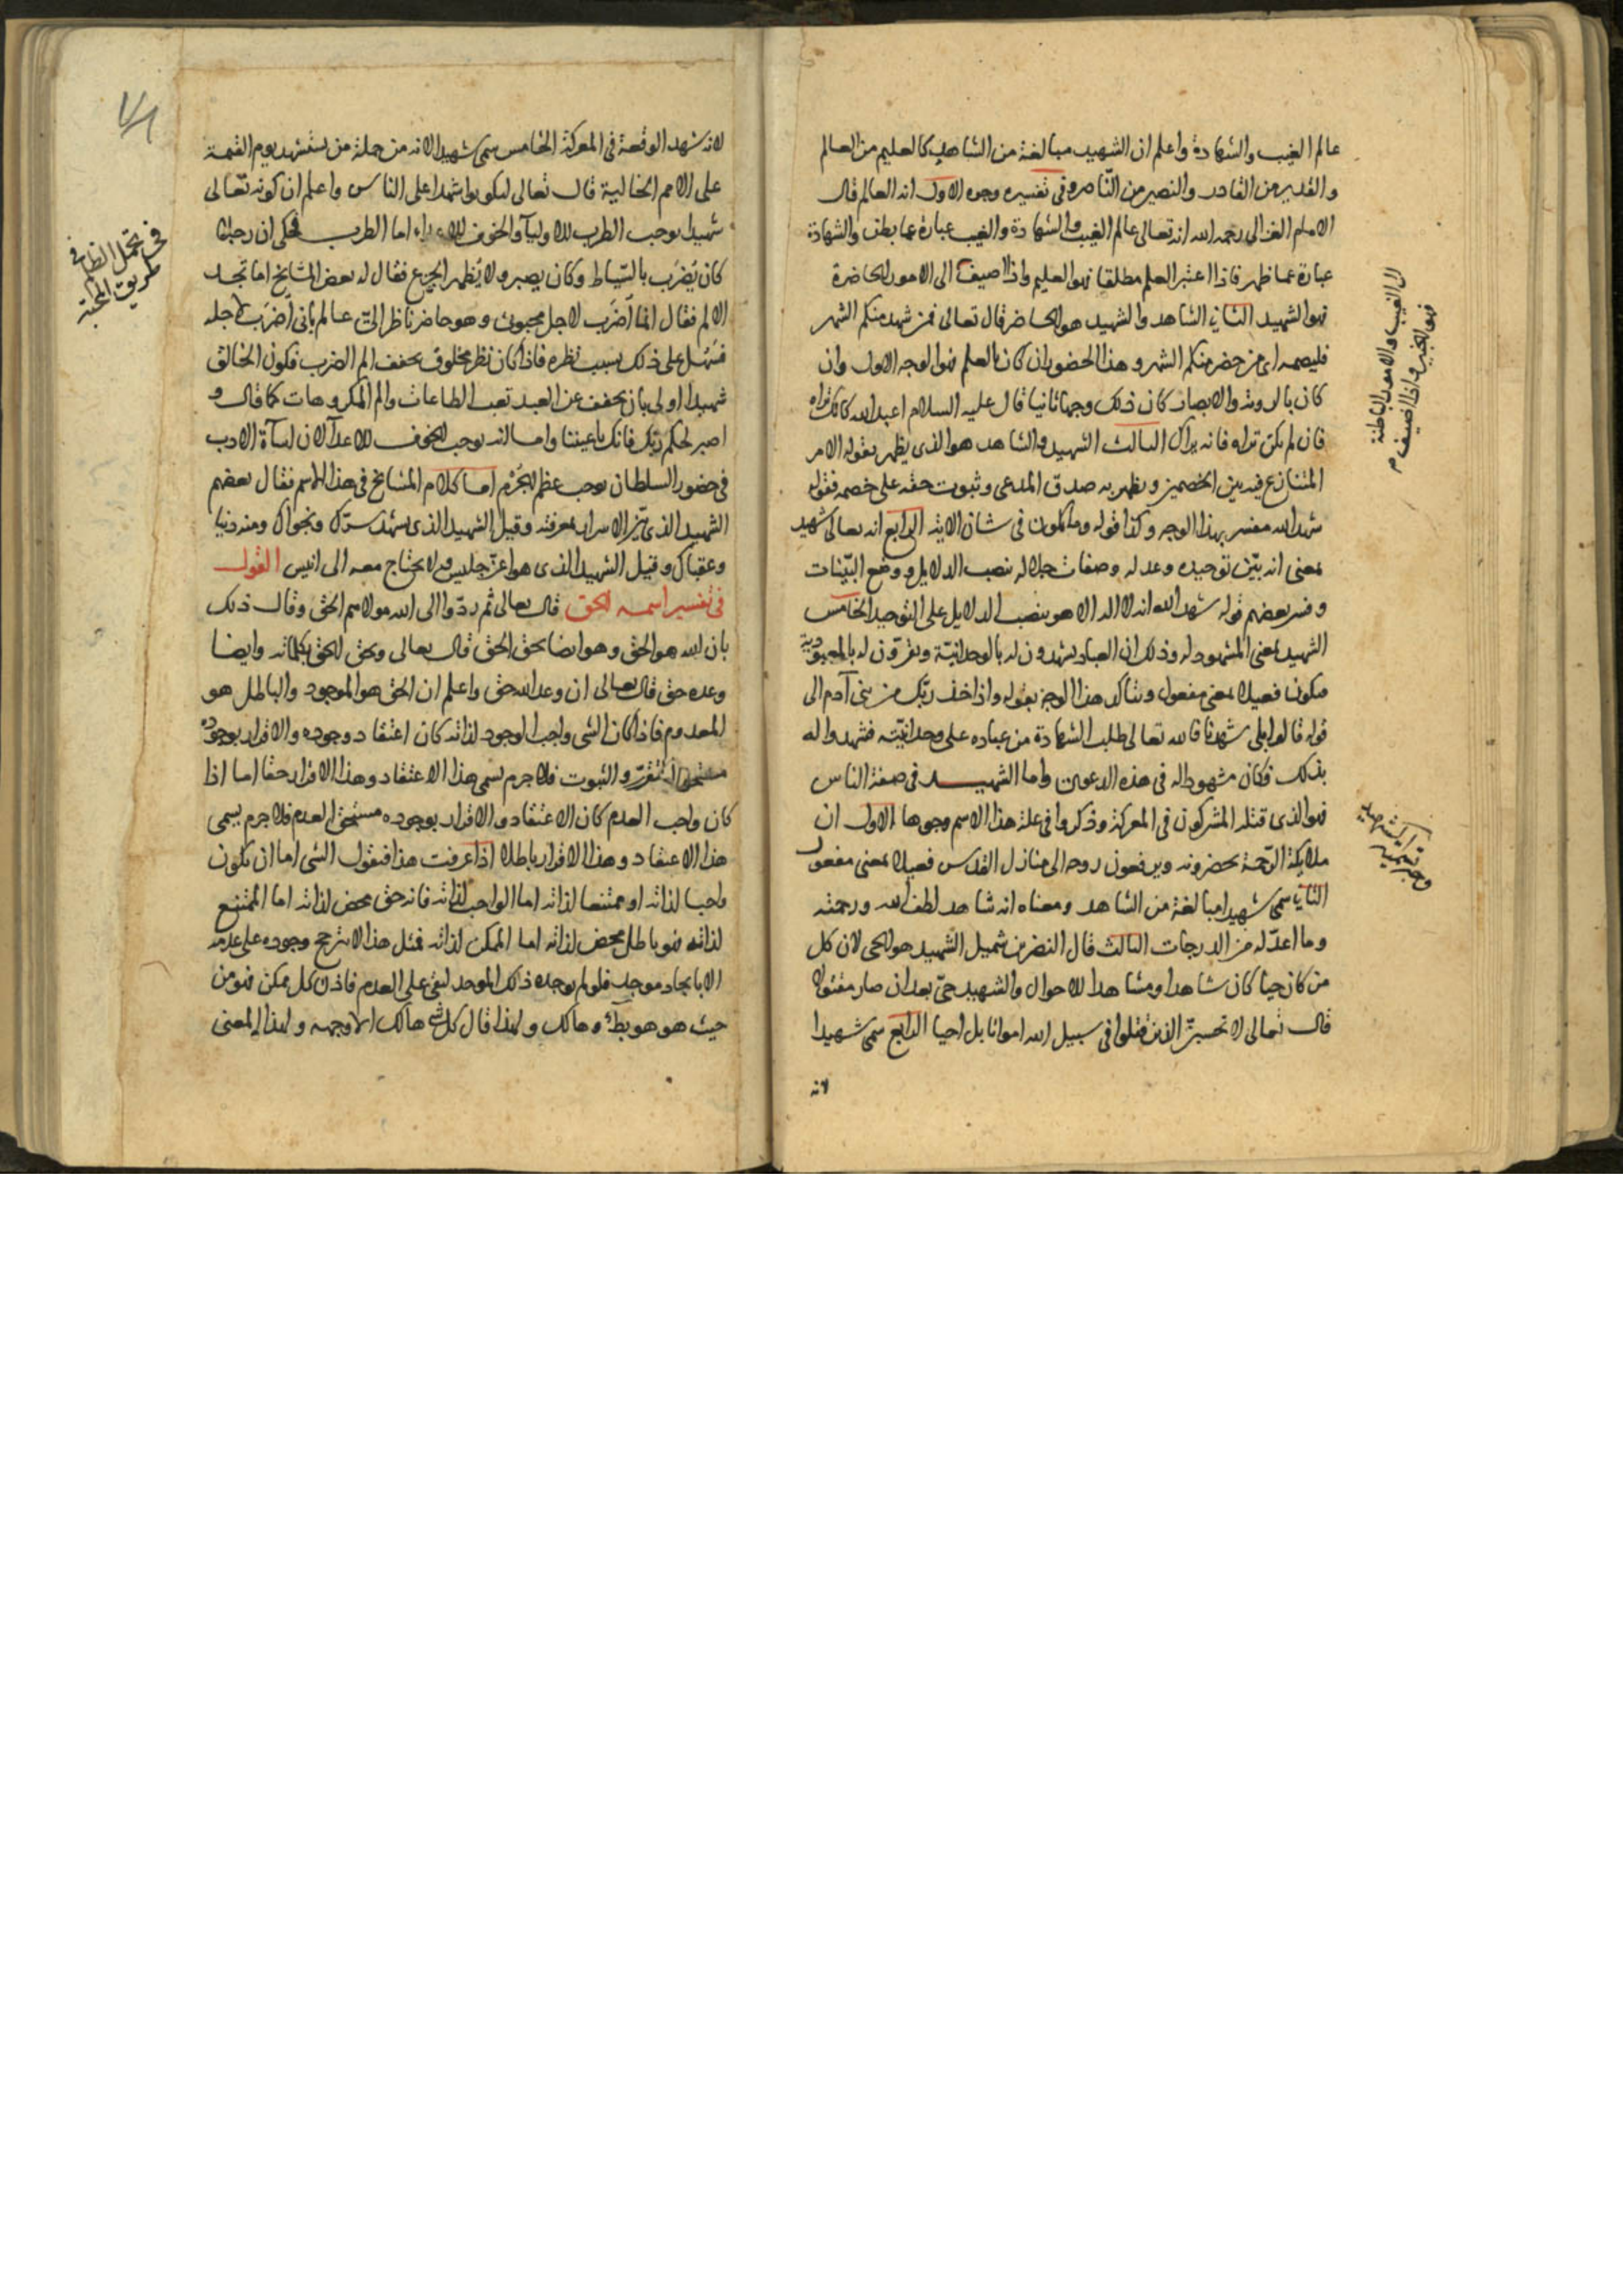 عالم الغيب والشهادة واعلم ان الشهيد مبالغة من الشاهد كالعليم من العالم
والقدير من القادر والنصير من الناصر وفي تفسيره وجوه الاول انه العالم قال
الامام الغزالي رحمه الله انه تعالى عالم الغيب والشهادة والغيب عبارة عما بطن والشهادة
عبارة عما ظهر فاذا اعتبر العلم مطلقا فهو العليم واذا اضيف الى الامور الحاضرة
فهو الشهيد الثاني الشاهد والشهيد هو الحاضر قال تعالى فمن شهد منكم الشهر
فليصمه اى من حضر منكم الشهر وهذا الحضور ان كان بالعلم فهو الوجه الاول وان
كان بالروية والابصار كان ذلك وجها ثانيا قال عليه السلام اعبد الله كانك تراه
فان لم تكن تراه فانه يراك الثالث الشهيد والشاهد هو الذى يظهر بقوله الامر
المتنازع فيه بين الخصمين ويظهر به صدق المدعى وثبوت حقه على خصمه فقوله
شهد الله مفسر بهذا الوجه وكذا قوله وما تكون في شان الاية الرابع انه تعالى شهيد
بمعنى انه بيّن توحيده وعدله وصفات جلاله بنصب الدلايل ووضع البيّنات
وفسر بعضهم قوله شهد الله انه لا اله الا هو بنصب الدلايل على التوحيد الخامس
الشهيد بمعنى المشهود له وذلك ان العباد يشهدون له بالوحدانيّة ويقرّون له بالعبودية
فيكون فعيلا بمعنى مفعول ويتأكد هذا الوجه بقوله واذ اخذ ربّك من بنى آدم الى
قوله قالوا بلى شهدنا فالله تعالى طلب الشهادة من عباده على وحدانيّته فشهدوا له
بذلك فكان مشهودا له في هذه الدعوى واما الشهيد في صفة الناس
فهو الذى قتله المشركون في المعركة وذكروا في علة هذا الاسم وجوها الاول ان
ملايكة الرّحمة يحضرونه ويرفعون روحه الى منازل القدس فعيلا بمعنى مفعول
الثاني سمى شهيدا مبالغة من الشاهد ومعناه انه شاهد لطف الله ورحمته
وما اعدّ له من الدرجات الثالث قال النضر بن شميل الشهيد هو الحى لان كل
من كان حيا كان شاهدا ومشاهدا للاحوال والشهيد حىّ بعد ان صار مقتولا
قال تعالى لا تحسبنّ الذين قتلوا في سبيل الله امواتا بل احيا الرابع سمى شهيدا
لانه
الى الغيب والامور الباطنة
فهو الخبير واذا اضيف م
لانه شهد الوقعة في المعركة الخامس سمى شهيدا لانه من جملة من يستشهد يوم القيمة
على الامم الخالية قال تعالى لتكونوا شهدا على الناس واعلم ان كونه تعالى
شهيدا يوجب الطرب للاوليآ والخوف للاعداء اما الطرب فحكى ان رجلا
كان يُضرَب بالسّياط وكان يصبر ولا يُظهر الجزع فقال له بعض المشايخ اما تجد
الالم فقال انما اُضرَب لاجل محبوبى وهو حاضر ناظر الىّ عالم بأنى اُضرَب لاجله
فسَهُل على ذلك بسبب نظره فاذا كان نظر مخلوق يخفف الم الضرب فكون الخالق
شهيدا اولى بان يخفف عن العبد تعب الطاعات والم المكروهات كما قال و
اصبر لحكم ربّك فانك باعيننا واما انه يوجب الخوف للاعدآ لان اسآة الادب
في حضور السلطان يوجب عظم الجُرْم اما كلام المشايخ في هذا الاسم فقال بعضهم
الشهيد الذى الاسرار بمعرفته وقيل الشهيد الذى يشهد سرّك ونجواك ومنه دنيا
وعقباك وقيل الشهيد الذى هو اعزّ جليس ولا يحتاج معه الى انيس القول
في تفسير اسمه الحق قال تعالى ثم ردّوا الى الله مولاهم الحق وقال ذلك
بان الله هو الحق وهو ايضا يحق الحق قال تعالى ويحق الحق بكلماته وايضا
وعده حق قال تعالى ان وعد الله حق واعلم ان الحق هو الموجود والباطل هو
المعدوم فاذا كان الشى واجب الوجود لذاته كان اعتقاد وجوده والاقرار بوجوده
مستحق التقرّر والثبوت فلا جرم يسمى هذا الاعتقاد وهذا الاقرار حقا اما اذا
كان واجب العدم كان الاعتقاد والاقرار بوجوده مستحق العدم فلا جرم يسمى
هذا الاعتقاد وهذا الاقرار باطلا اذا عرفت هذا فنقول الشى اما ان يكون
واجبا لذاته او ممتنعا لذاته اما الواجب لذاته فانه حق محض لذاته اما الممتنع
لذاته فهو باطل محض لذاته اما الممكن لذاته فمثل هذا لا يترجح وجوده على عدمه
الا بايجاد موجد فلو لم يوجده ذلك الموجد لبقى على العدم فاذن كل ممكن فهو من
حيث هو هو باطل وهالك ولهذا قال كل شى هالك الا وجهه ولهذا المعنى
في تحمل الظالم في
طريق المحبة